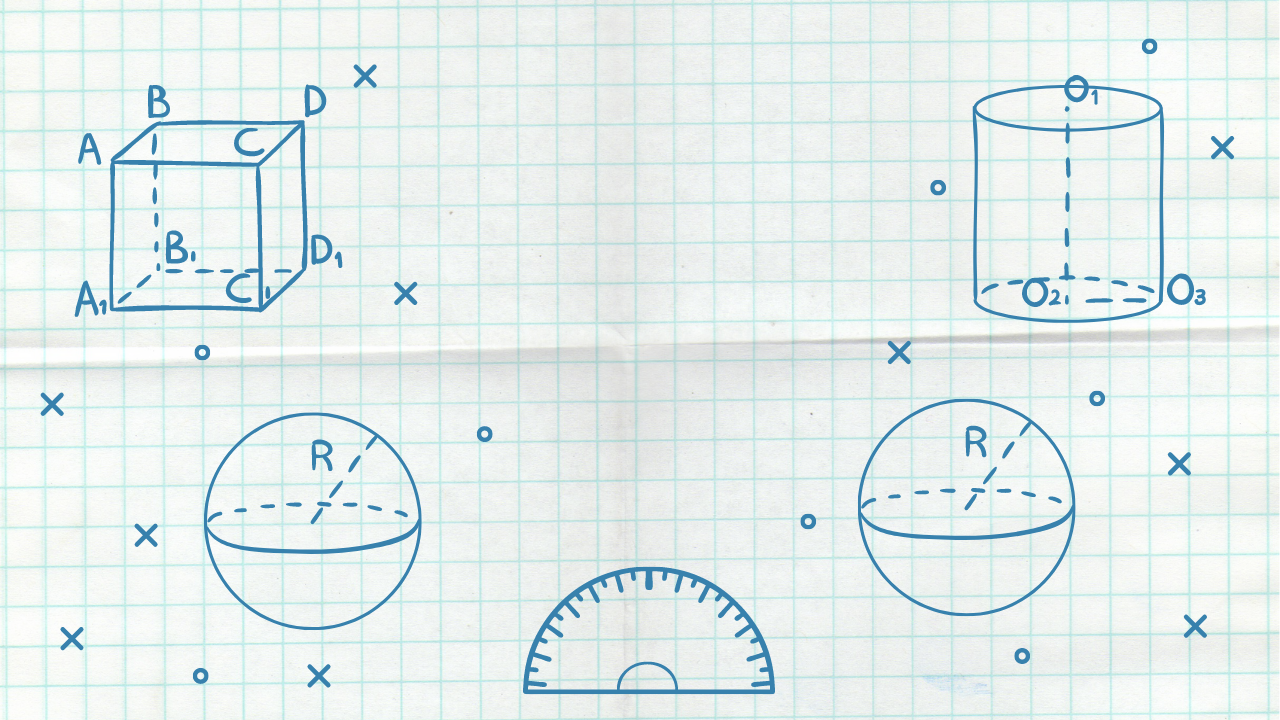 B D
A C
B₁ D₁
A₁ C₁
O₁
O₂ O₃
R
R